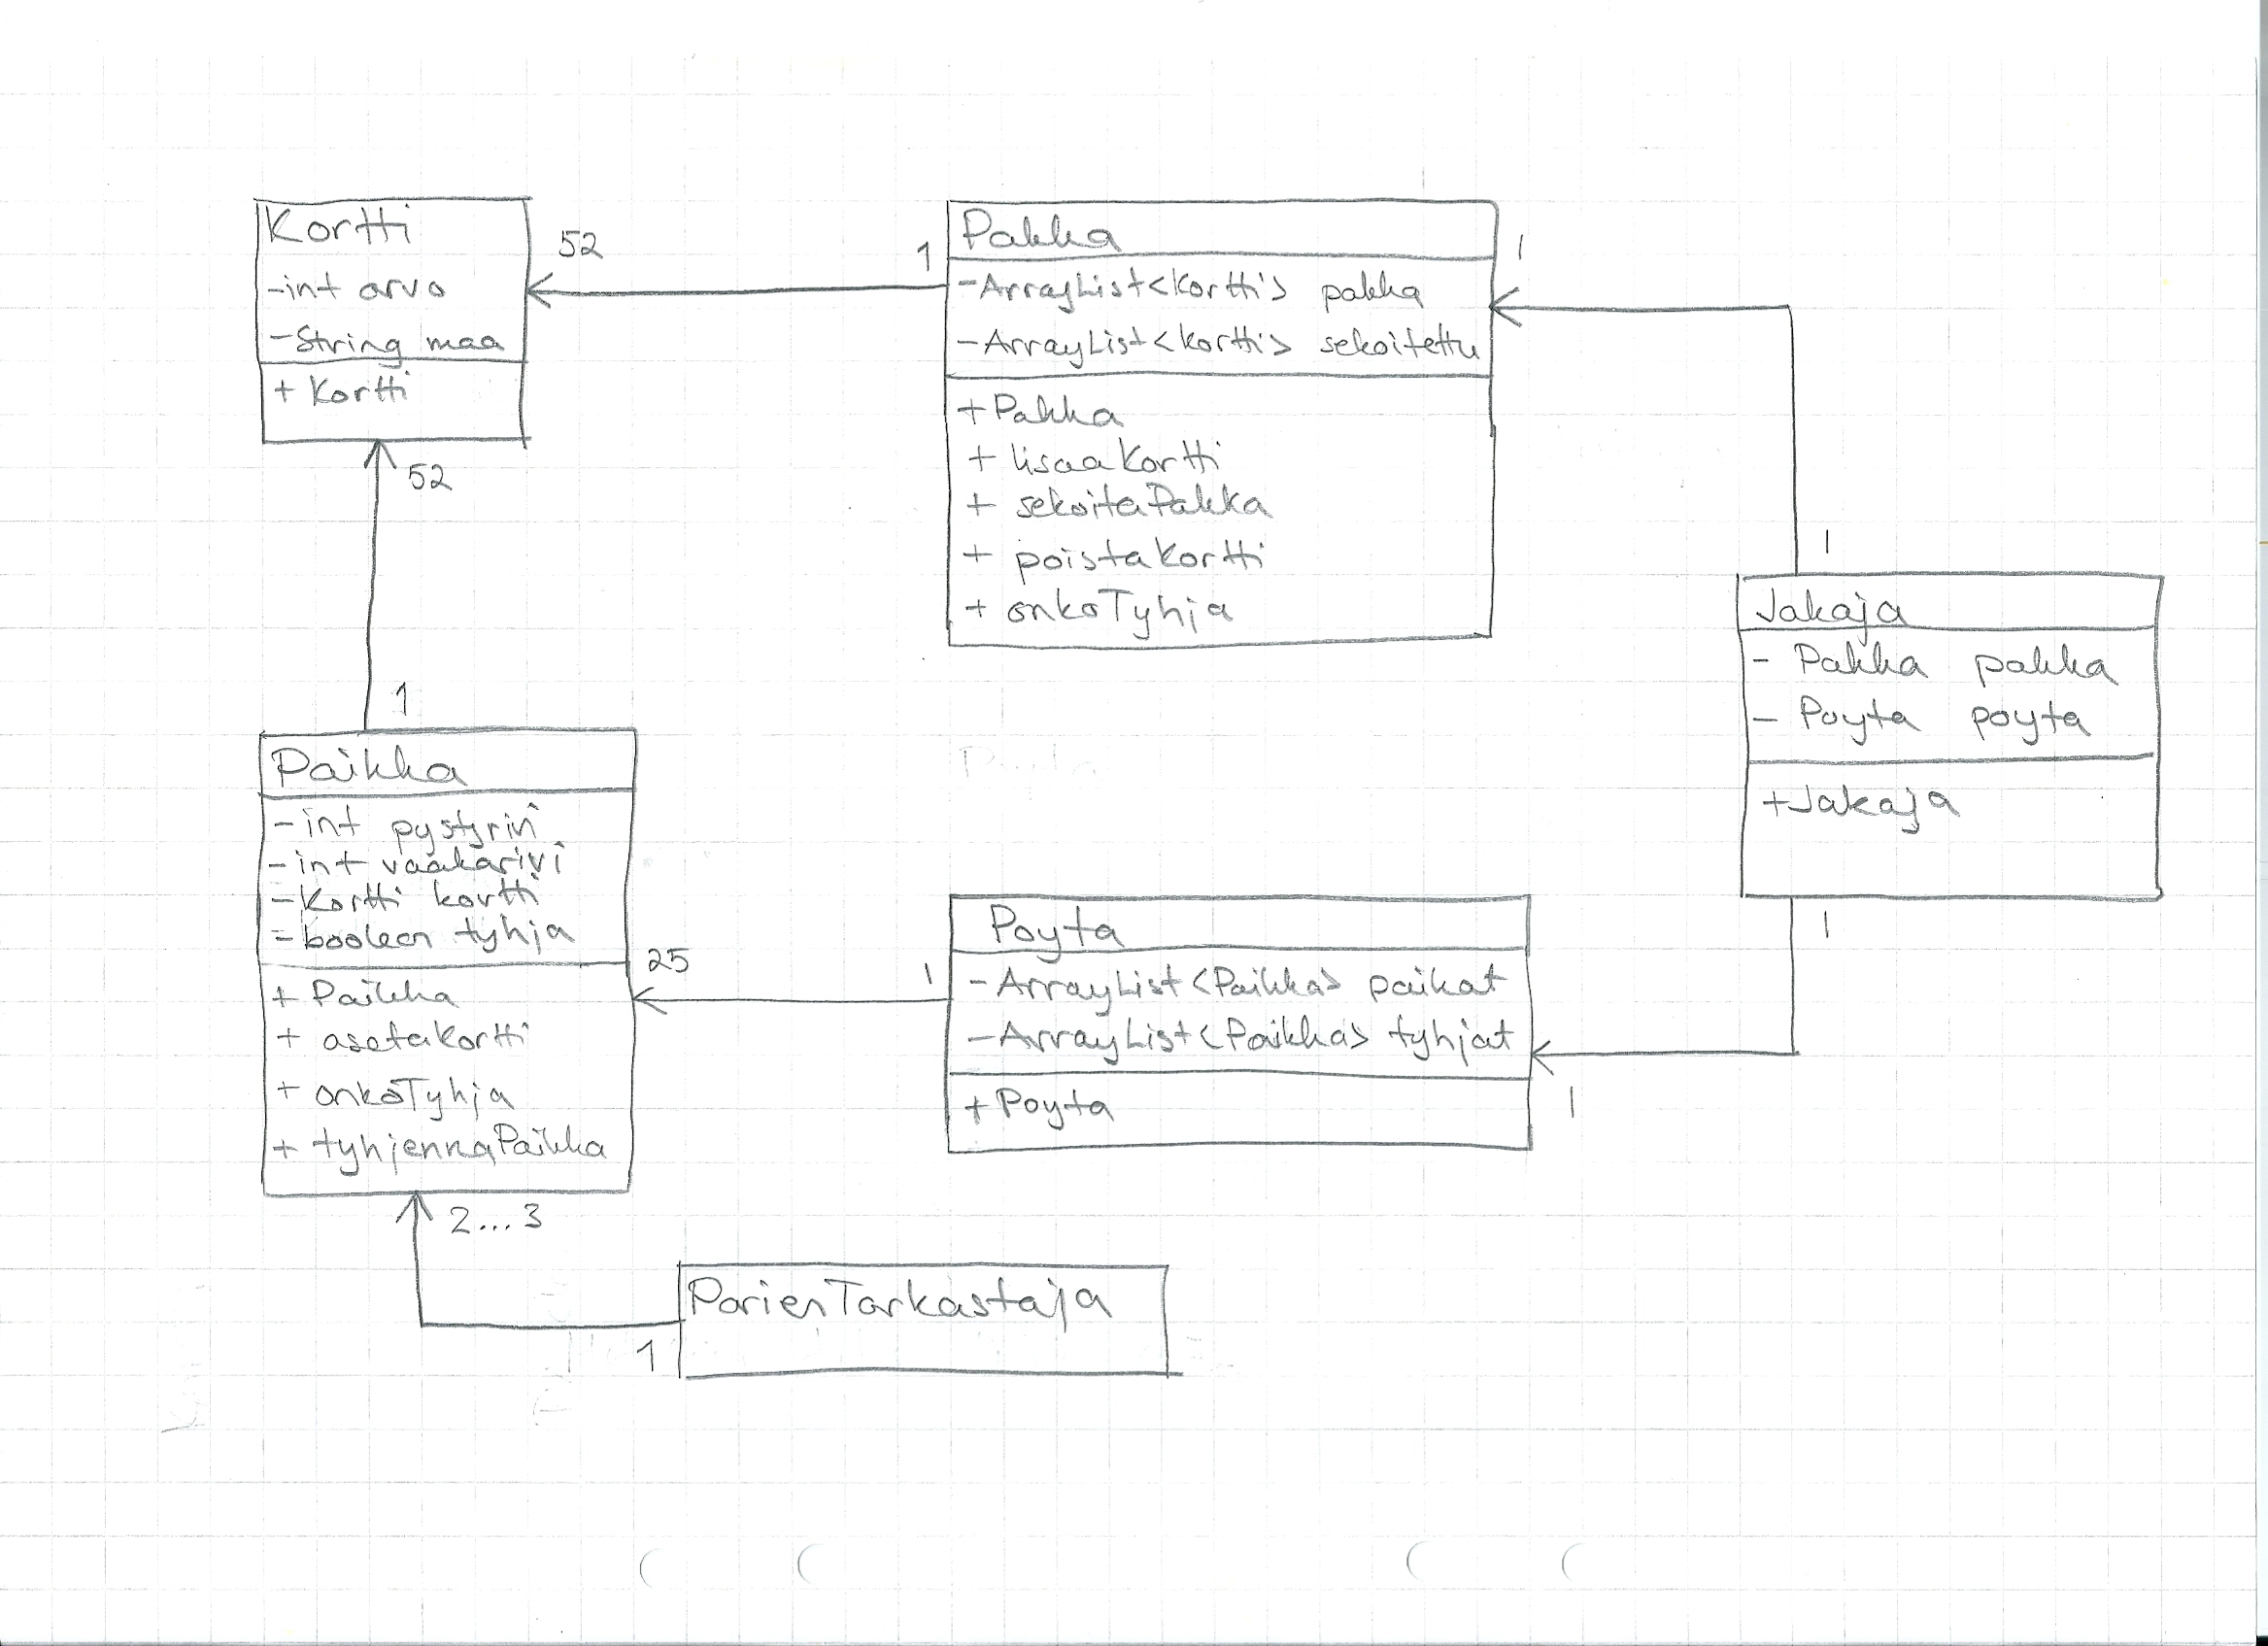 Kortti
-int arvo
-String maa
+ Kortti
52
1
Pakka
-ArrayList<Kortti> pakka
-ArrayList<Kortti> sekoitettu
+Pakka
+ lisaaKortti
+ sekoitaPakka
+ poistaKortti
+ onkoTyhja
1
1
Jakaja
- Pakka pakka
- Poyta poyta
+Jakaja
1
52
1
Paikka
-int pystyrivi
-int vaakarivi
-Kortti kortti
-boolean tyhja
+ Paikka
+ asetaKortti
+ onkoTyhja
+ tyhjennaPaikka
25
1
Poyta
-ArrayList<Paikka> paikat
-ArrayList<Paikka> tyhjat
+Poyta
1
2...3
1
ParienTarkastaja